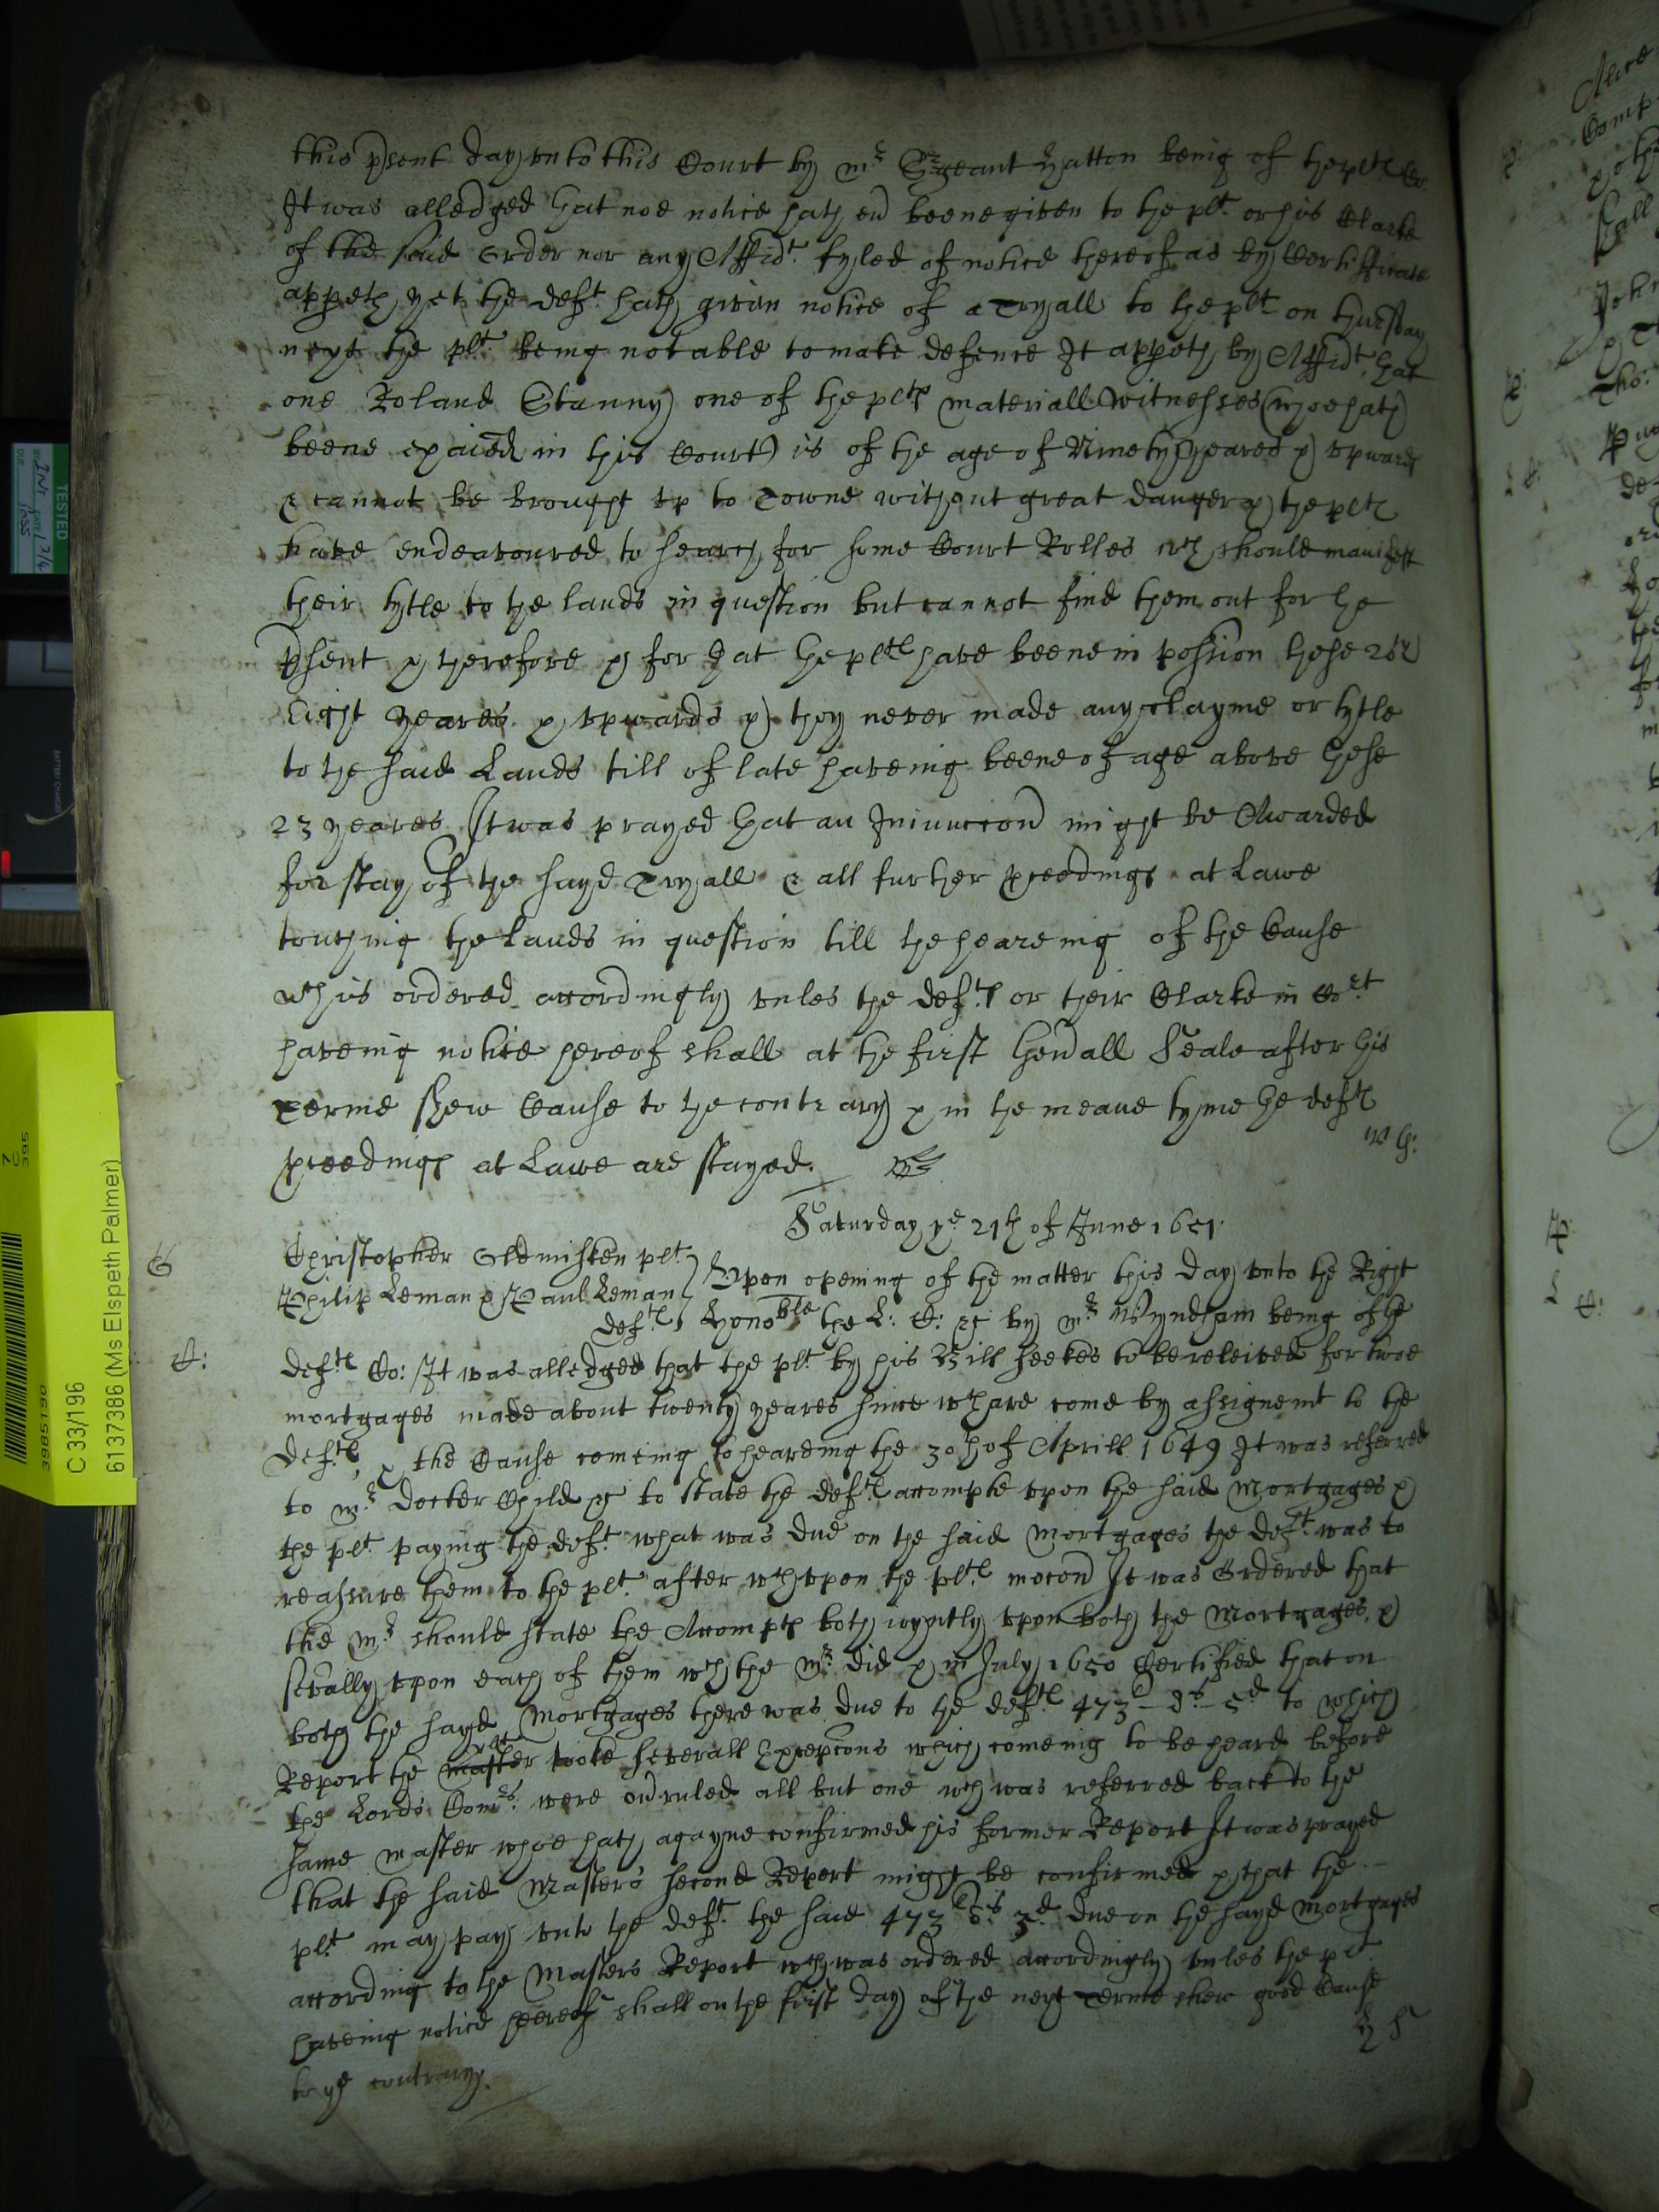 this p̱sent day vnto this Court by mr Sergeant Hatton being of the pltes Co:
It was alledged that noe notice hath eu beene given to the plt. or his Clarke
of the said order nor any Affidt. fyled of notice thereof as by Certifficate
appeth, yet the deft. hath given notice of a Tryall to the plt on thursday
next the plt. being not able to make defence It appeth by Affidt. that
one Roland Stanny one of the pltes materiall witnesses (whoe hath
beene exaied in this Court) is of the age of Ninety yeares & vpwards
& cannot be brought vp to Towne without great danger & the pltes
have endeavoured to search for some Court Rolles wch should manifest
their tytle to the lands in question but cannot find them out for the
p̱sent & therefore & for that the pltes have beene in possion these
Eight yeares & vpwards & they never made any clayme or tytle
to the said Lands till of late haveing beene of age above these
23 yeares It was prayed that an Iniunccon might be Awarded
for stay of the sayd Tryall & all further p̱ceedings at Lawe
touching the lands in question till the heareing of the Cause
wch is ordered accordingly vnles the deftes or their Clarke in Cort
haveing notice hereof shall at the first Genall Seale after this
Terme shew Cause to the contrary & in the meane tyme the deftes
p̱ceedings at Lawe are stayed.
W h:
Saturday ye 21th of June 1651.
G
Christopher Clemisken plt.
Philip Leman & Paul Leman
deftes
Vpon opening of the matter this day vnto the Right
Honoble the L: C: &c by mr Wyndham being of the
C:
deftes Co: It was alledged that the plt. by his Bill seekes to be releived for twoe
mortgages made about twenty yeares since wch are come by assignemt to the
deftes, & the Cause comeing to heareing the 30th of Aprill 1649 It was referred
to mr Docter Child &c to state the deftes accompte vpon the said Mortgages &
the plt. paying the deft. what was due on the said Mortgages the deft. was to
reassure them to the plt. after wch vpon the pltes mocon It was Ordered that
the mr should state the Accompts both ioyntly vpon both the Mortgages, &
sevally vpon each of them wch the mr did & in July 1650 Certified that on
both the sayd Mortgages there was due to the deftes 473l - 8s - 5d to which
Report the master plt tooke severall Excepcons which comeing to be heard before
the Lords Comrs. were ovruled all but one wch was referred back to the
same master whoe hath agayne confirmed his former Report It was prayed
that the said Masters second Report might be confirmed & that the
plt may pay vnto the deft. the said 473l 8s 3d due on the sayd Mortgages
according to the Masters Report wch was ordered accordingly vnles the plt
haveing notice hereof shall on the first day of the next Terme shew good Cause
to ye contrary.
H h
TESTED
DATE
DUE
7
C
395
3985190
C 33/196
6137386 (Ms Elspeth Palmer)